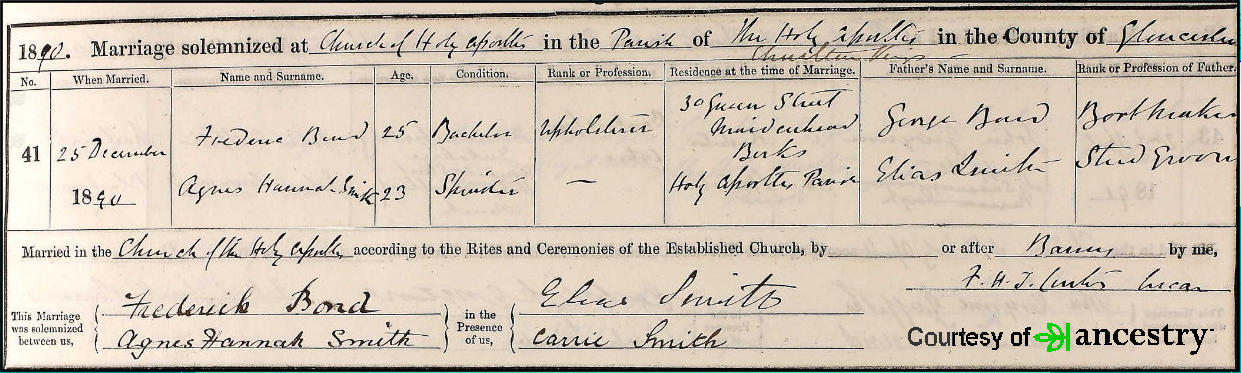 1890. Marriage solemnized at Church of Holy Apostles in the Parish of The Holy Apostles in the County of Gloucester
Charlton Kings
No. When Married. Name and Surname. Age. Condition. Rank or Profession. Residence at the time of Marriage. Father's Name and Surname. Rank or Profession of Father.
41 25 December 1890
Frederic Bond 25 Bachelor Upholsterer 30 Queen Street Maidenhead Berks George Bond Bootmaker
Agnes Hannah Smith 23 Spinster — Holy Apostles Parish Elias Smith Stud Groom
Married in the Church of the Holy Apostles according to the Rites and Ceremonies of the Established Church, by or after Banns by me,
F. H. J. Curtis Vicar
This Marriage was solemnized between us, Frederick Bond Agnes Hannah Smith in the Presence of us, Elias Smith Carrie Smith
Courtesy of ancestry